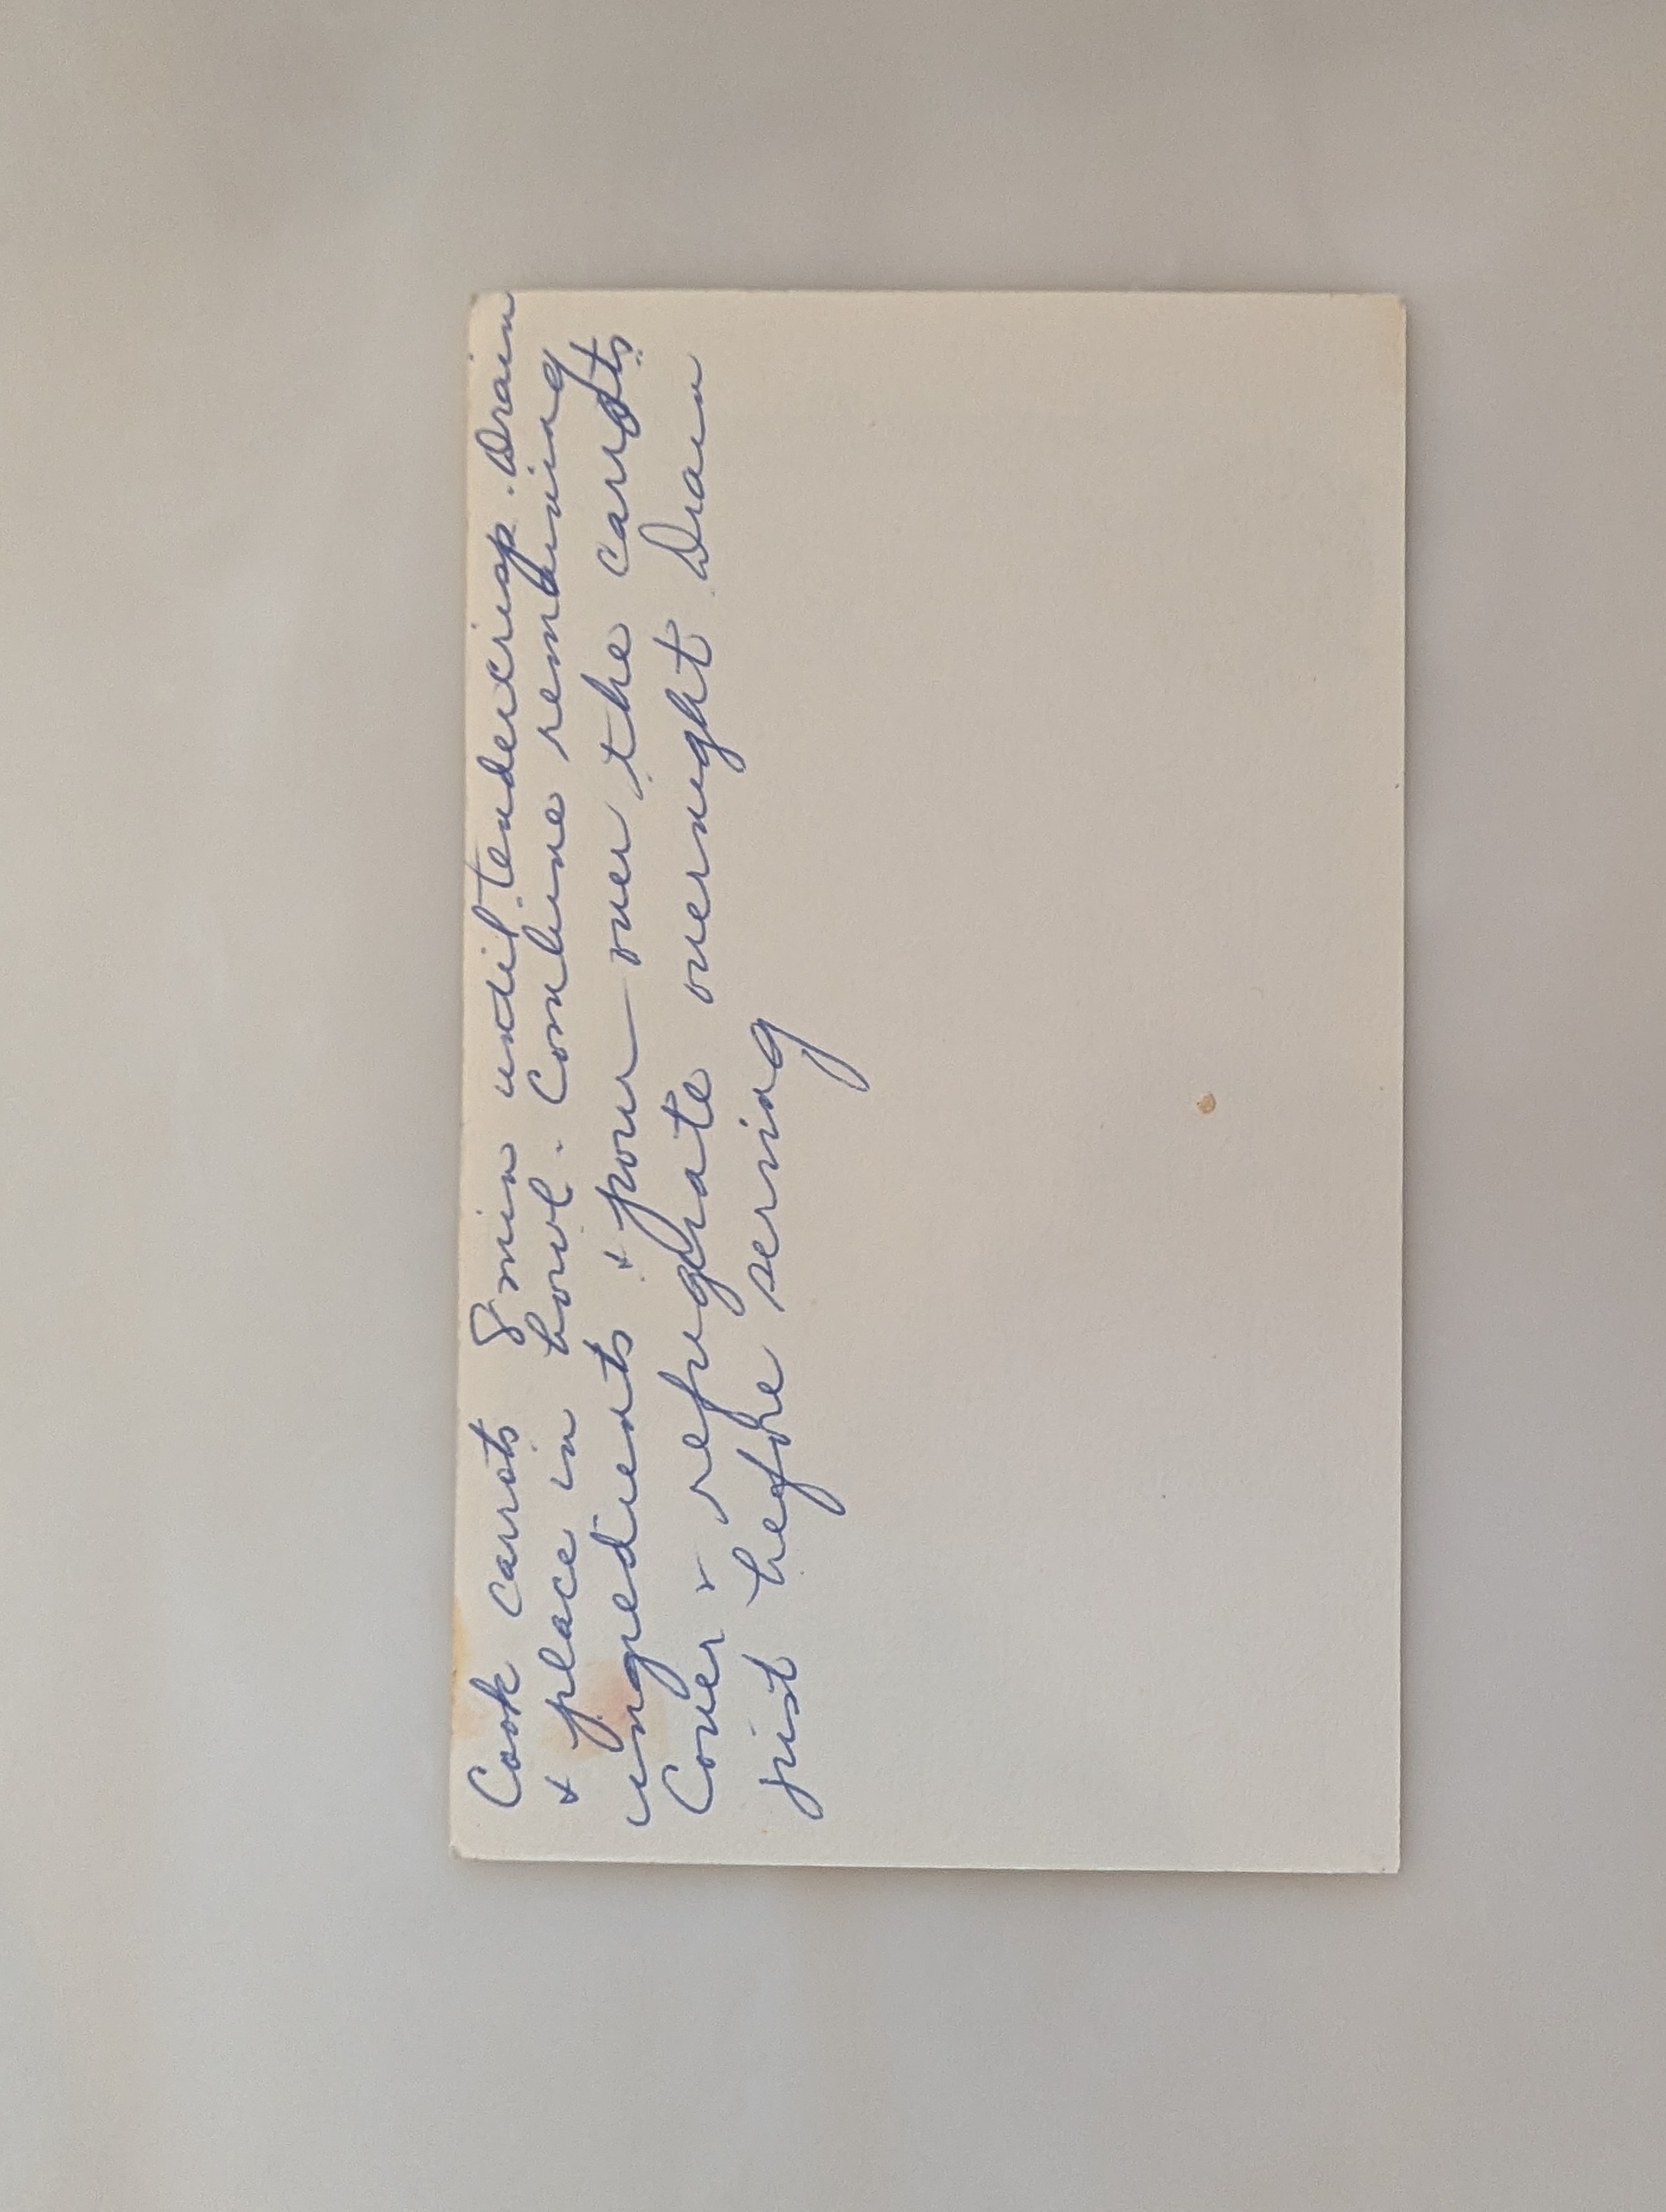 Cook carrots 8 min until tendercrisp. Drain
+ place in bowl. Combine remaining
ingredients + pour over the carrots
Cover + refrigerate overnight Drain
just before serving